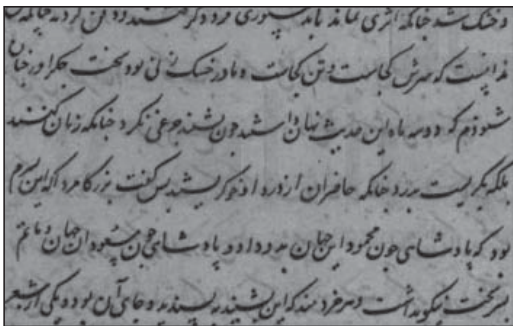 و خشک شد چنانکه اثری نماند تا بدستوری فرود گرفتند و دفن کردند چنانکه کس
ندانست که سرش کجاست و تن کجاست و مادر حسنک زنی بود سخت جگرآور چنان
شنودم که دو سه ماه این حدیث نهان داشتند چون بشنید جزعی نکرد چنانکه زنان کنند
بلکه بگریست بدرد چنانکه حاضران از درد او خون گریستند پس گفت بزرگا مردا که این پسرم
بود که پادشاهی چون محمود این جهان بدو داد و پادشاهی چون مسعود آن جهان و ماتم
پسر سخت نیکو بداشت و هر خردمند که این بشنید بپسندید و جای آن بود و یکی از شعر